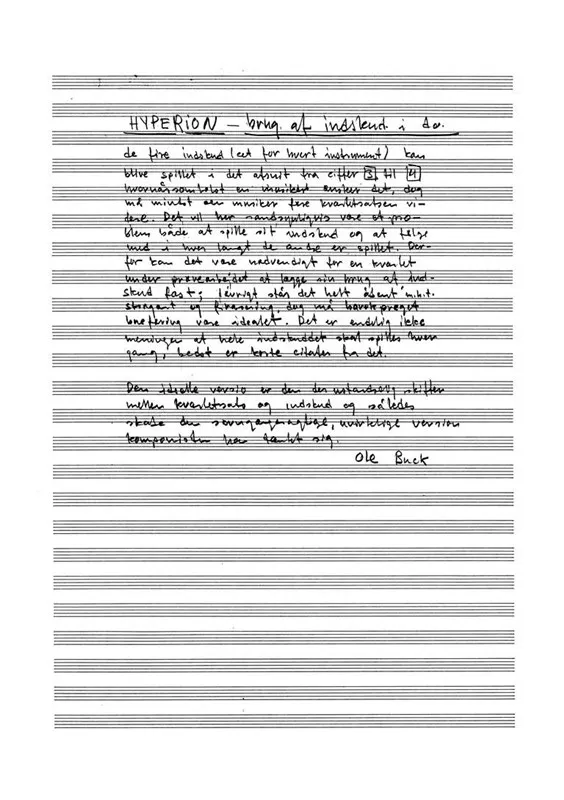 HYPERION – brug af indskud i do.
de fire indskud (eet for hvert instrument) kan
blive spillet i det afsnit fra ciffer 3 til 4
hvornårsomhelst en musiker ønsker det, dog
må mindst een musiker føre kvartetsatsen vi-
dere. Det vil her sandsynligvis være et pro-
blem både at spille sit indskud og at følge
med i hvor langt de andre er spillet. Der-
for kan det være nødvendigt for en kvartet
under prøvearbejdet at lægge sin brug af ind-
skud fast; iøvrigt står det helt åbent m.h.t.
strøgart og frasering dog må barokpræget
være idealet. Det er endelig ikke
meningen at hele indskuddet skal spilles hver
gang, bedst er korte citater fra det.
Den ideelle versio er den der ustandselig skifter
mellem kvartetsats og indskud og således
skabe den uvirkelige version
komponisten har tænkt sig.
Ole Buck